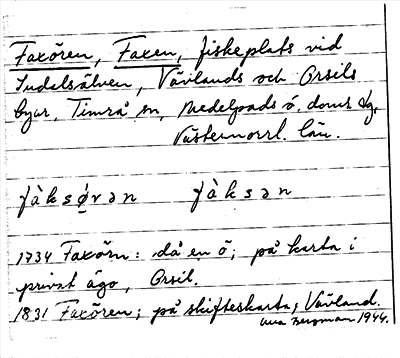 Faxören, Faxen, fiskeplats vid
Indalsälven, Vävlands och Orsils
byar, Timrå sn, Medelpads ö. doms dg,
Västernorrl. län.
fàksø̣rən fàksən
1734 Faxörn: då en ö; på karta i
privat ägo, Orsil.
1831 Faxören; på skifteskarta, Vävland.
Bergman 1944.